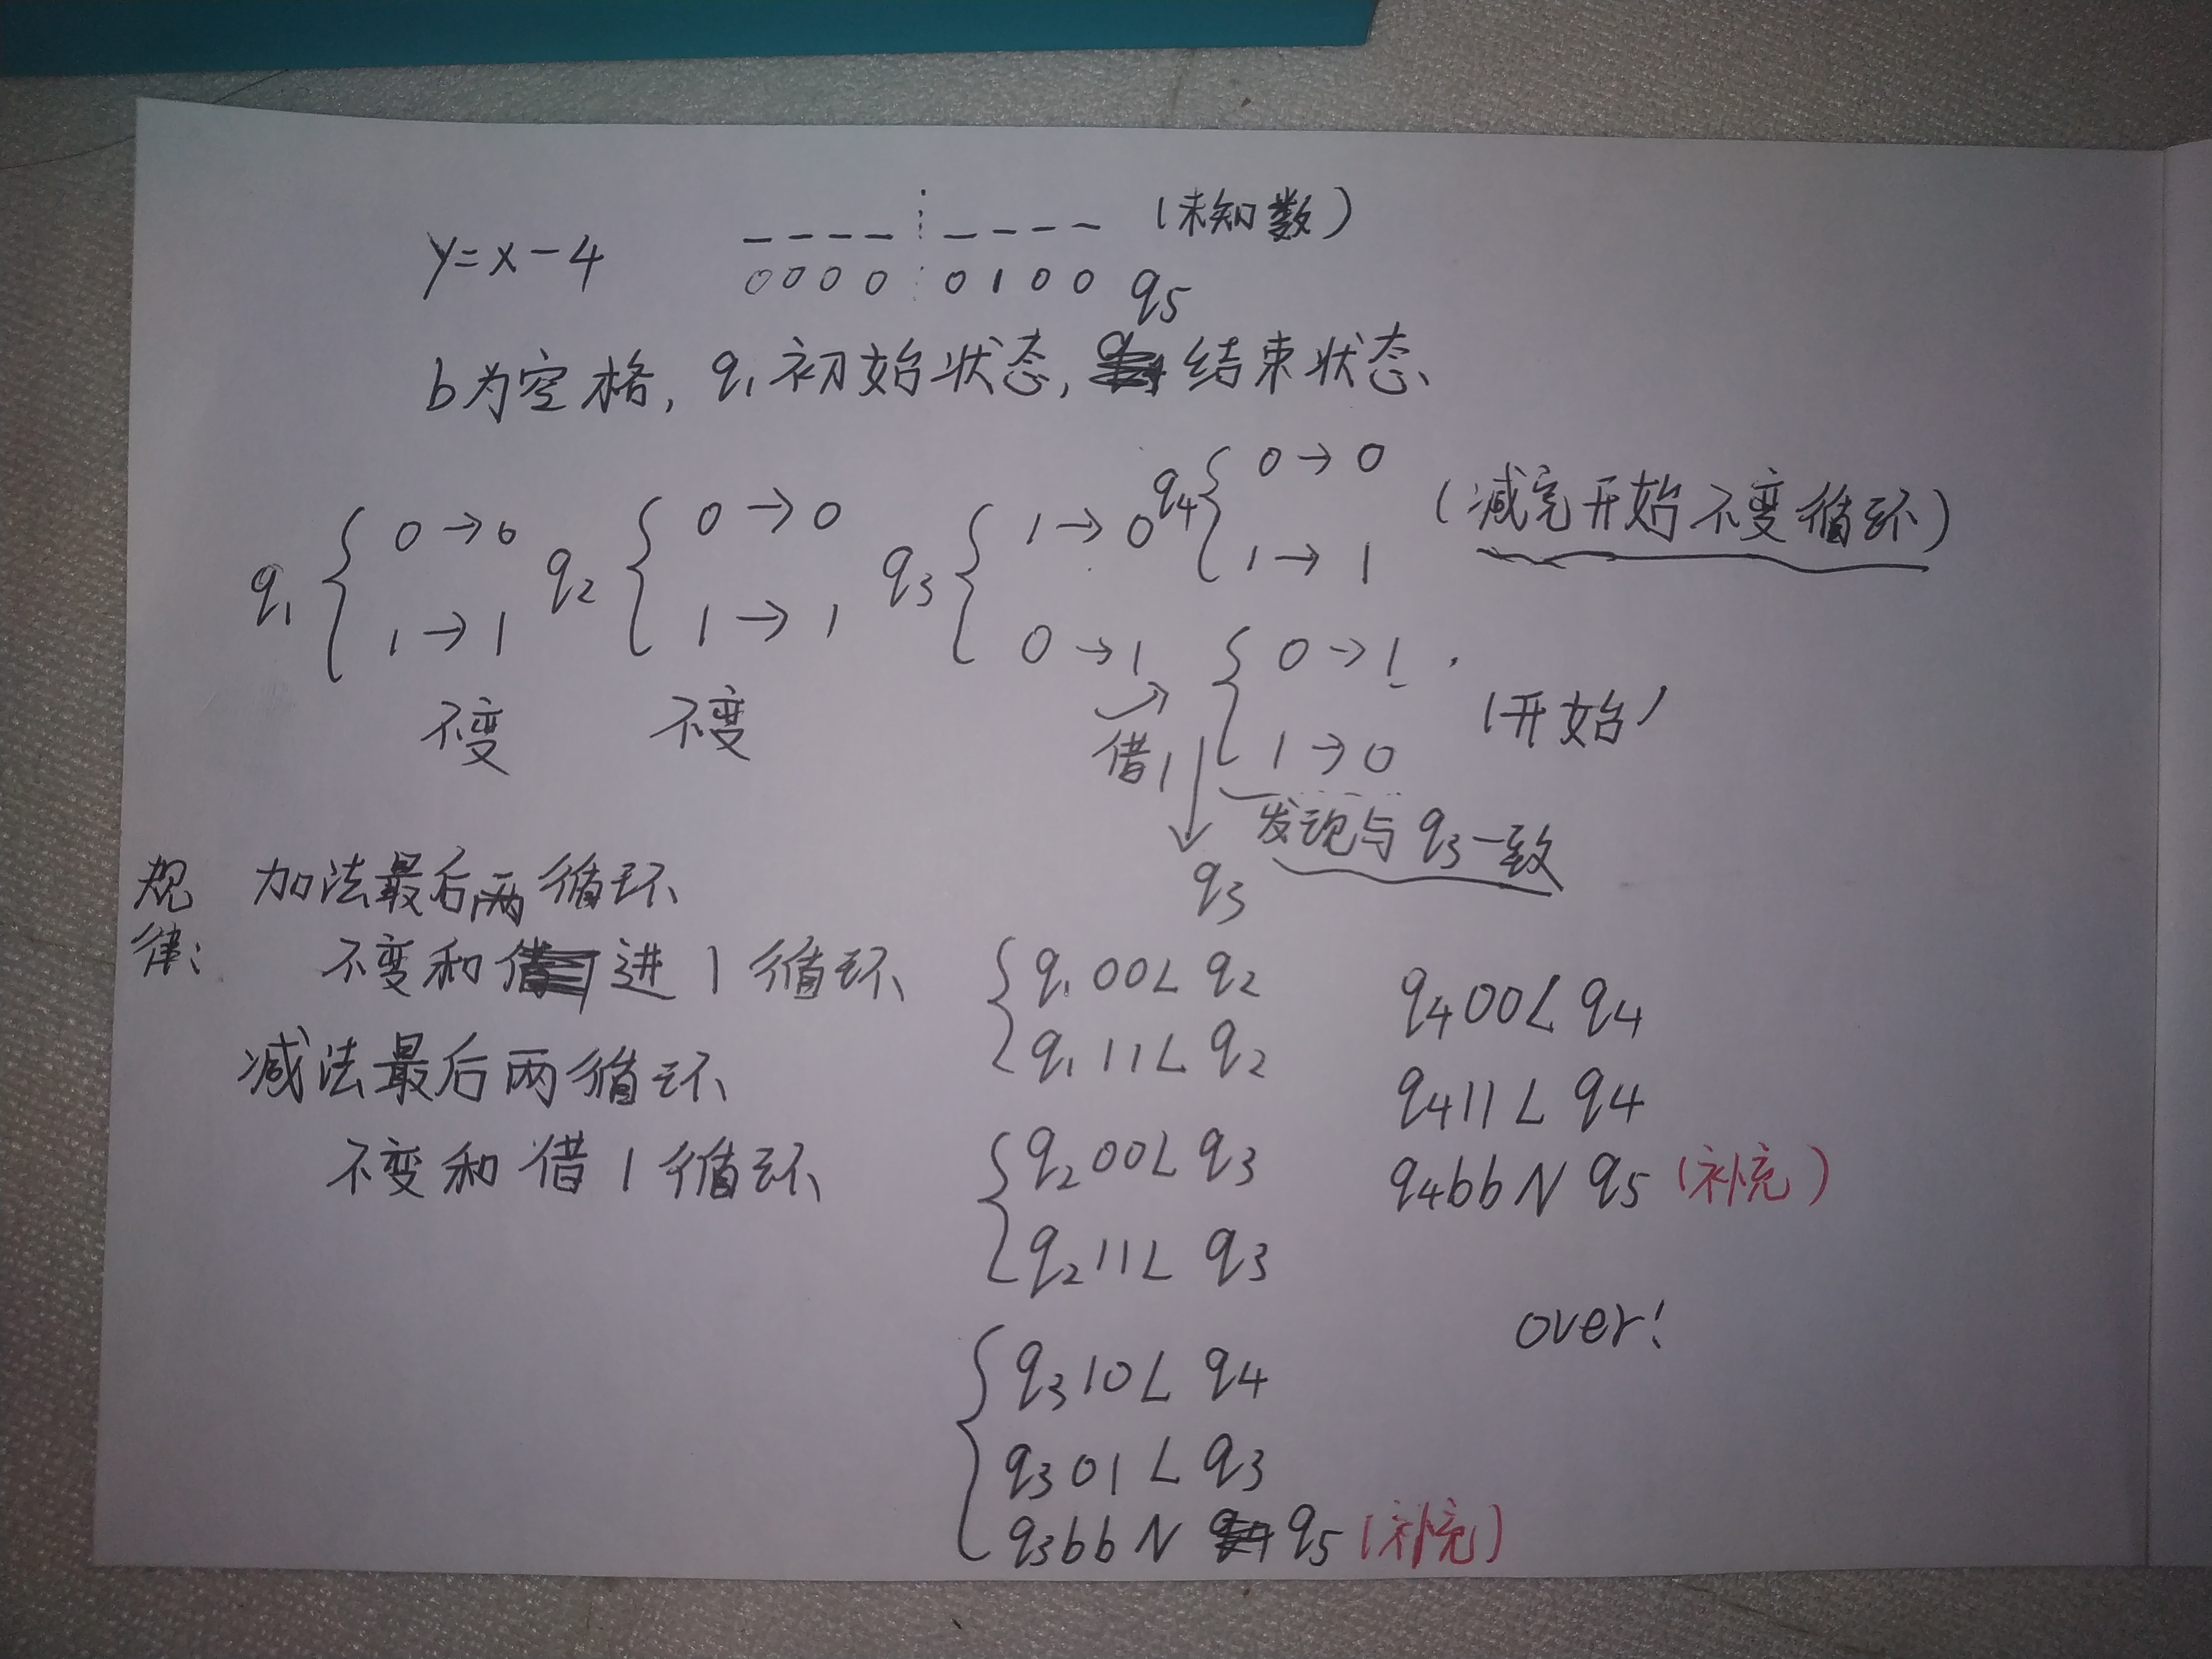 y=x-4 ---- ⋮ ---- (未知数)
0000 ⋮ 0100 q5
b为空格, q1初始状态, 结束状态、
q1 { 0→0 1→1 不变
q2 { 0→0 1→1 不变
q3 { 1→0 0→1
q4 { 0→0 1→1 (减完开始不变循环)
借1 { 0→1 1→0 (开始)
发现与q3一致
q3
规律:
加法最后两循环
不变和进1循环、
减法最后两循环、
不变和借1循环、
{ q1 00L q2
q1 11L q2
{ q2 00L q3
q2 11L q3
{ q3 10L q4
q3 01L q3
q3bbN q5 (补充)
q4 00L q4
q4 11L q4
q4bbN q5 (补充)
over!